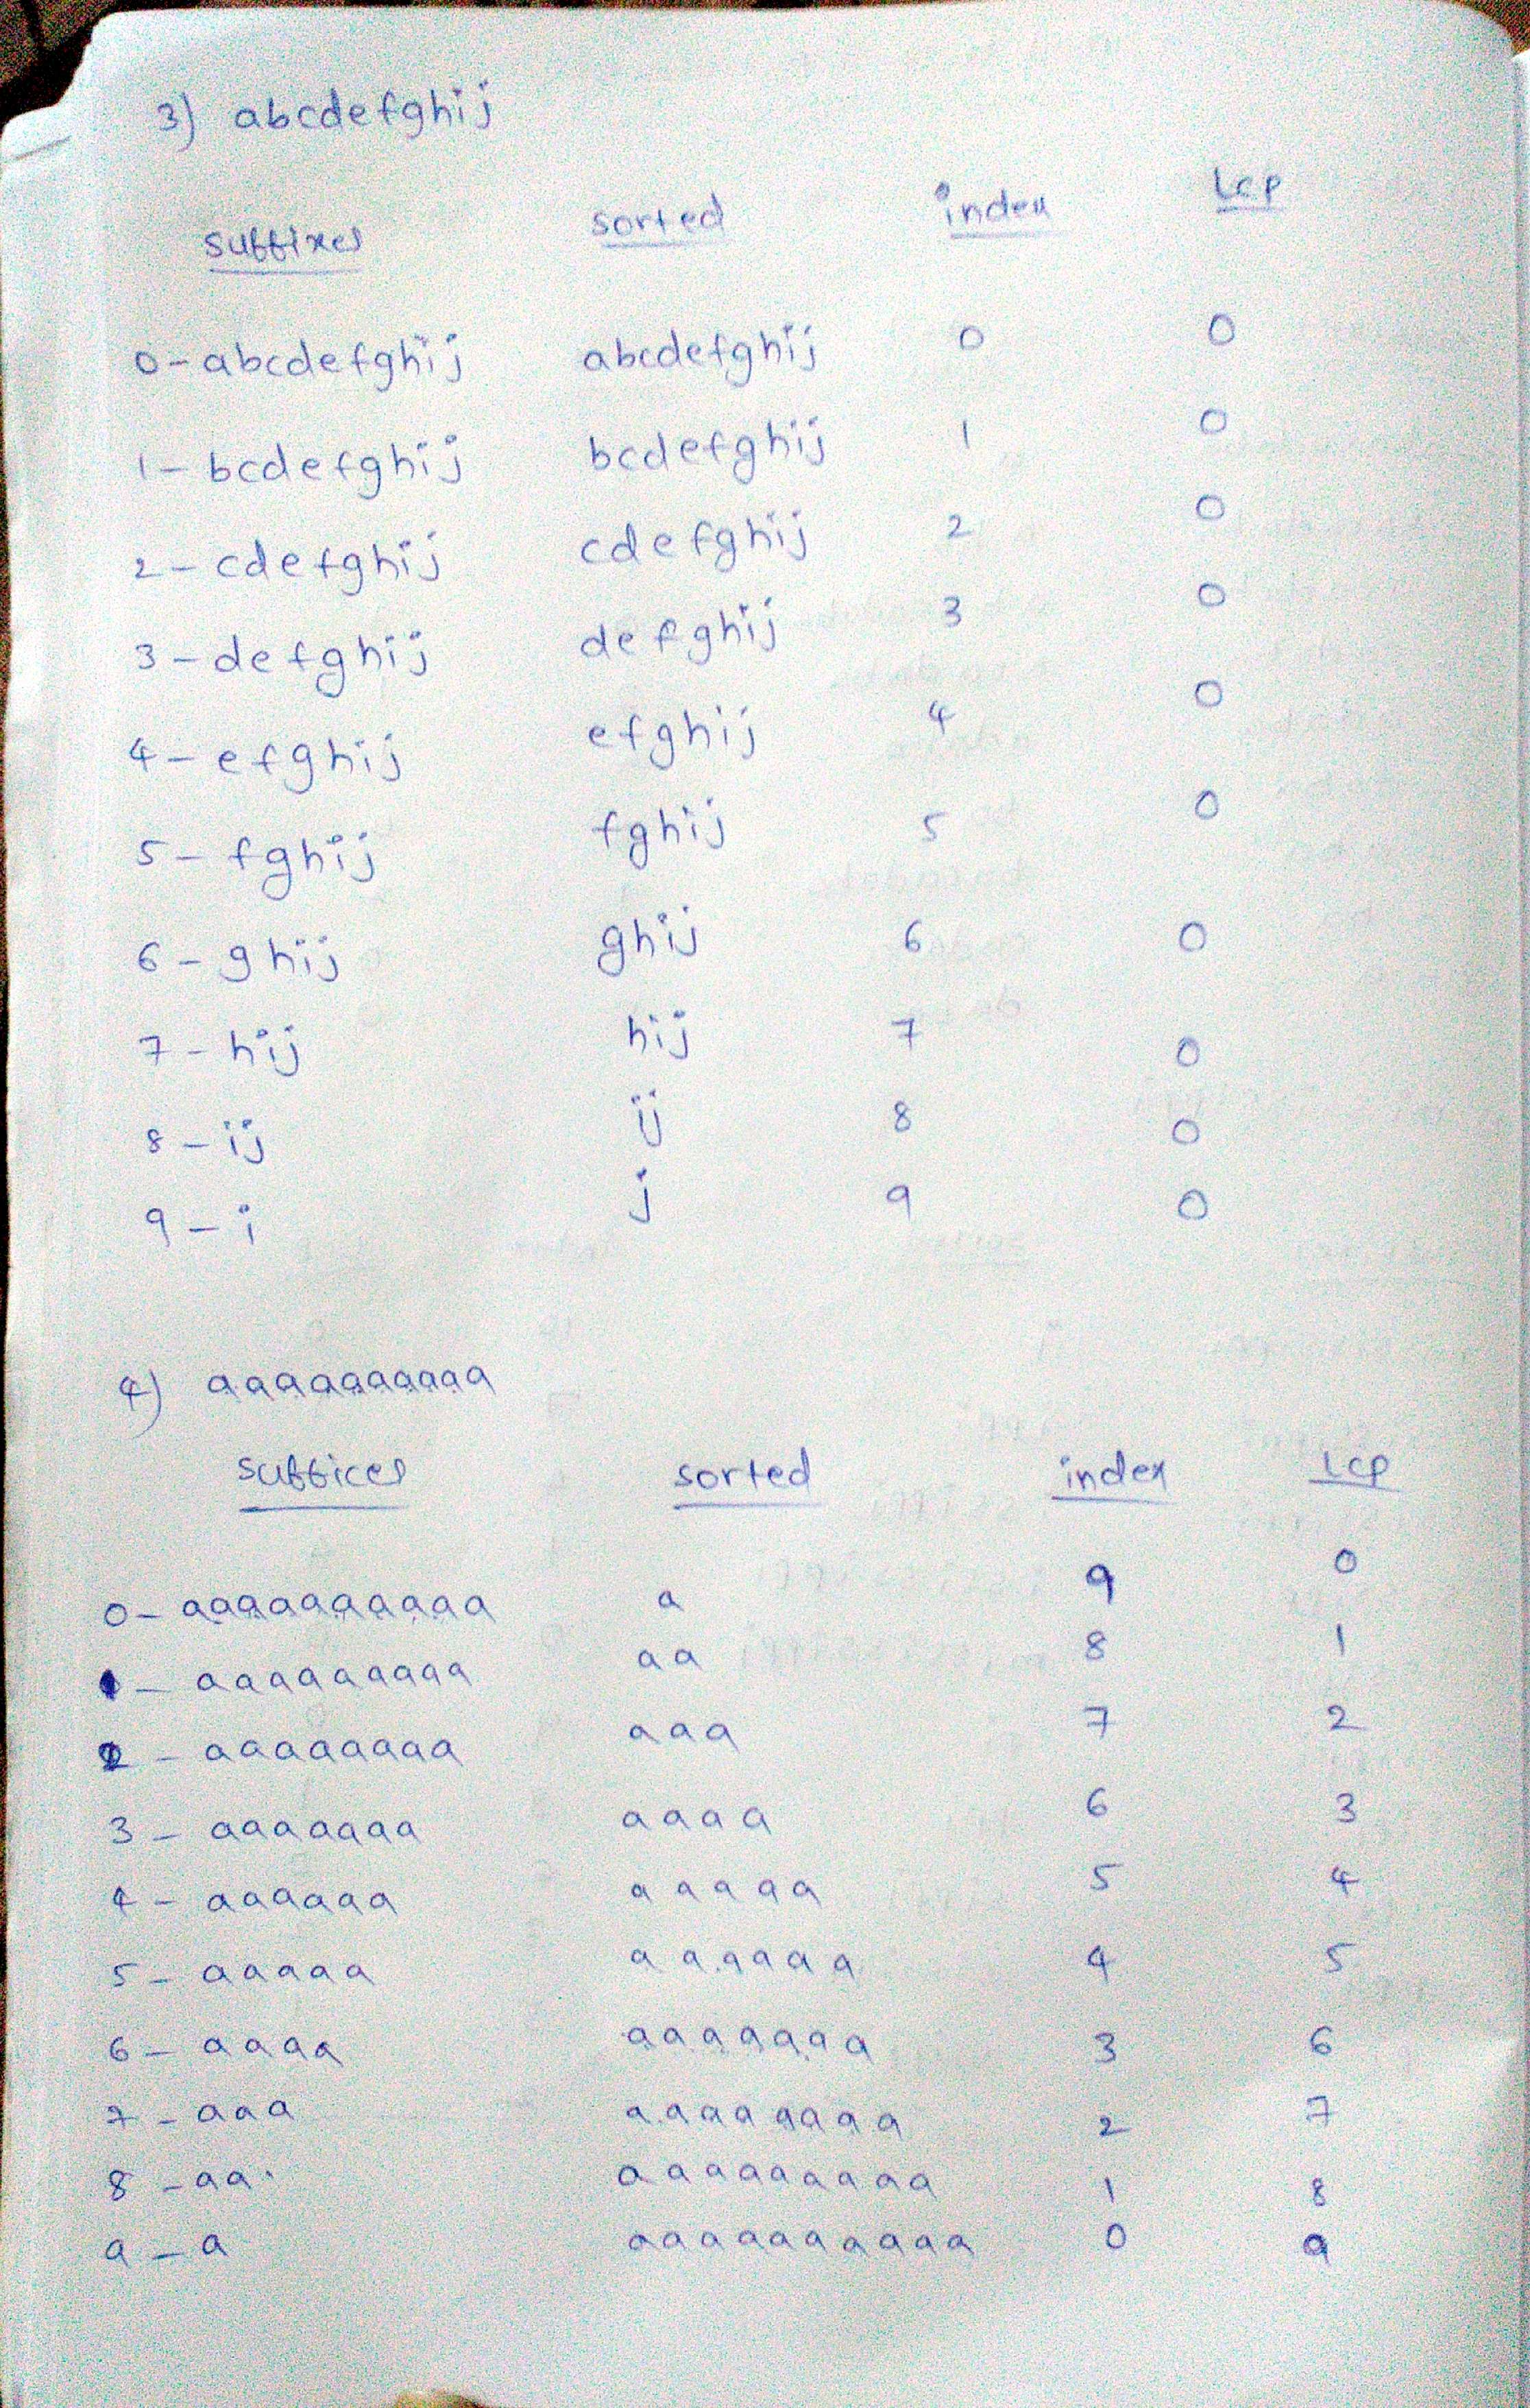 3) abcdefghij
suffixes sorted index lcp
0 - abcdefghij abcdefghij 0 0
1 - bcdefghij bcdefghij 1 0
2 - cdefghij cdefghij 2 0
3 - defghij defghij 3 0
4 - efghij efghij 4 0
5 - fghij fghij 5 0
6 - ghij ghij 6 0
7 - hij hij 7 0
8 - ij ij 8 0
9 - j j 9 0
4) aaaaaaaaaa
suffices sorted index lcp
0 - aaaaaaaaaa a 9 0
1 - aaaaaaaaa aa 8 1
2 - aaaaaaaa aaa 7 2
3 - aaaaaaa aaaa 6 3
4 - aaaaaa aaaaa 5 4
5 - aaaaa aaaaaa 4 5
6 - aaaa aaaaaaa 3 6
7 - aaa aaaaaaaa 2 7
8 - aa aaaaaaaaa 1 8
9 - a aaaaaaaaaa 0 9